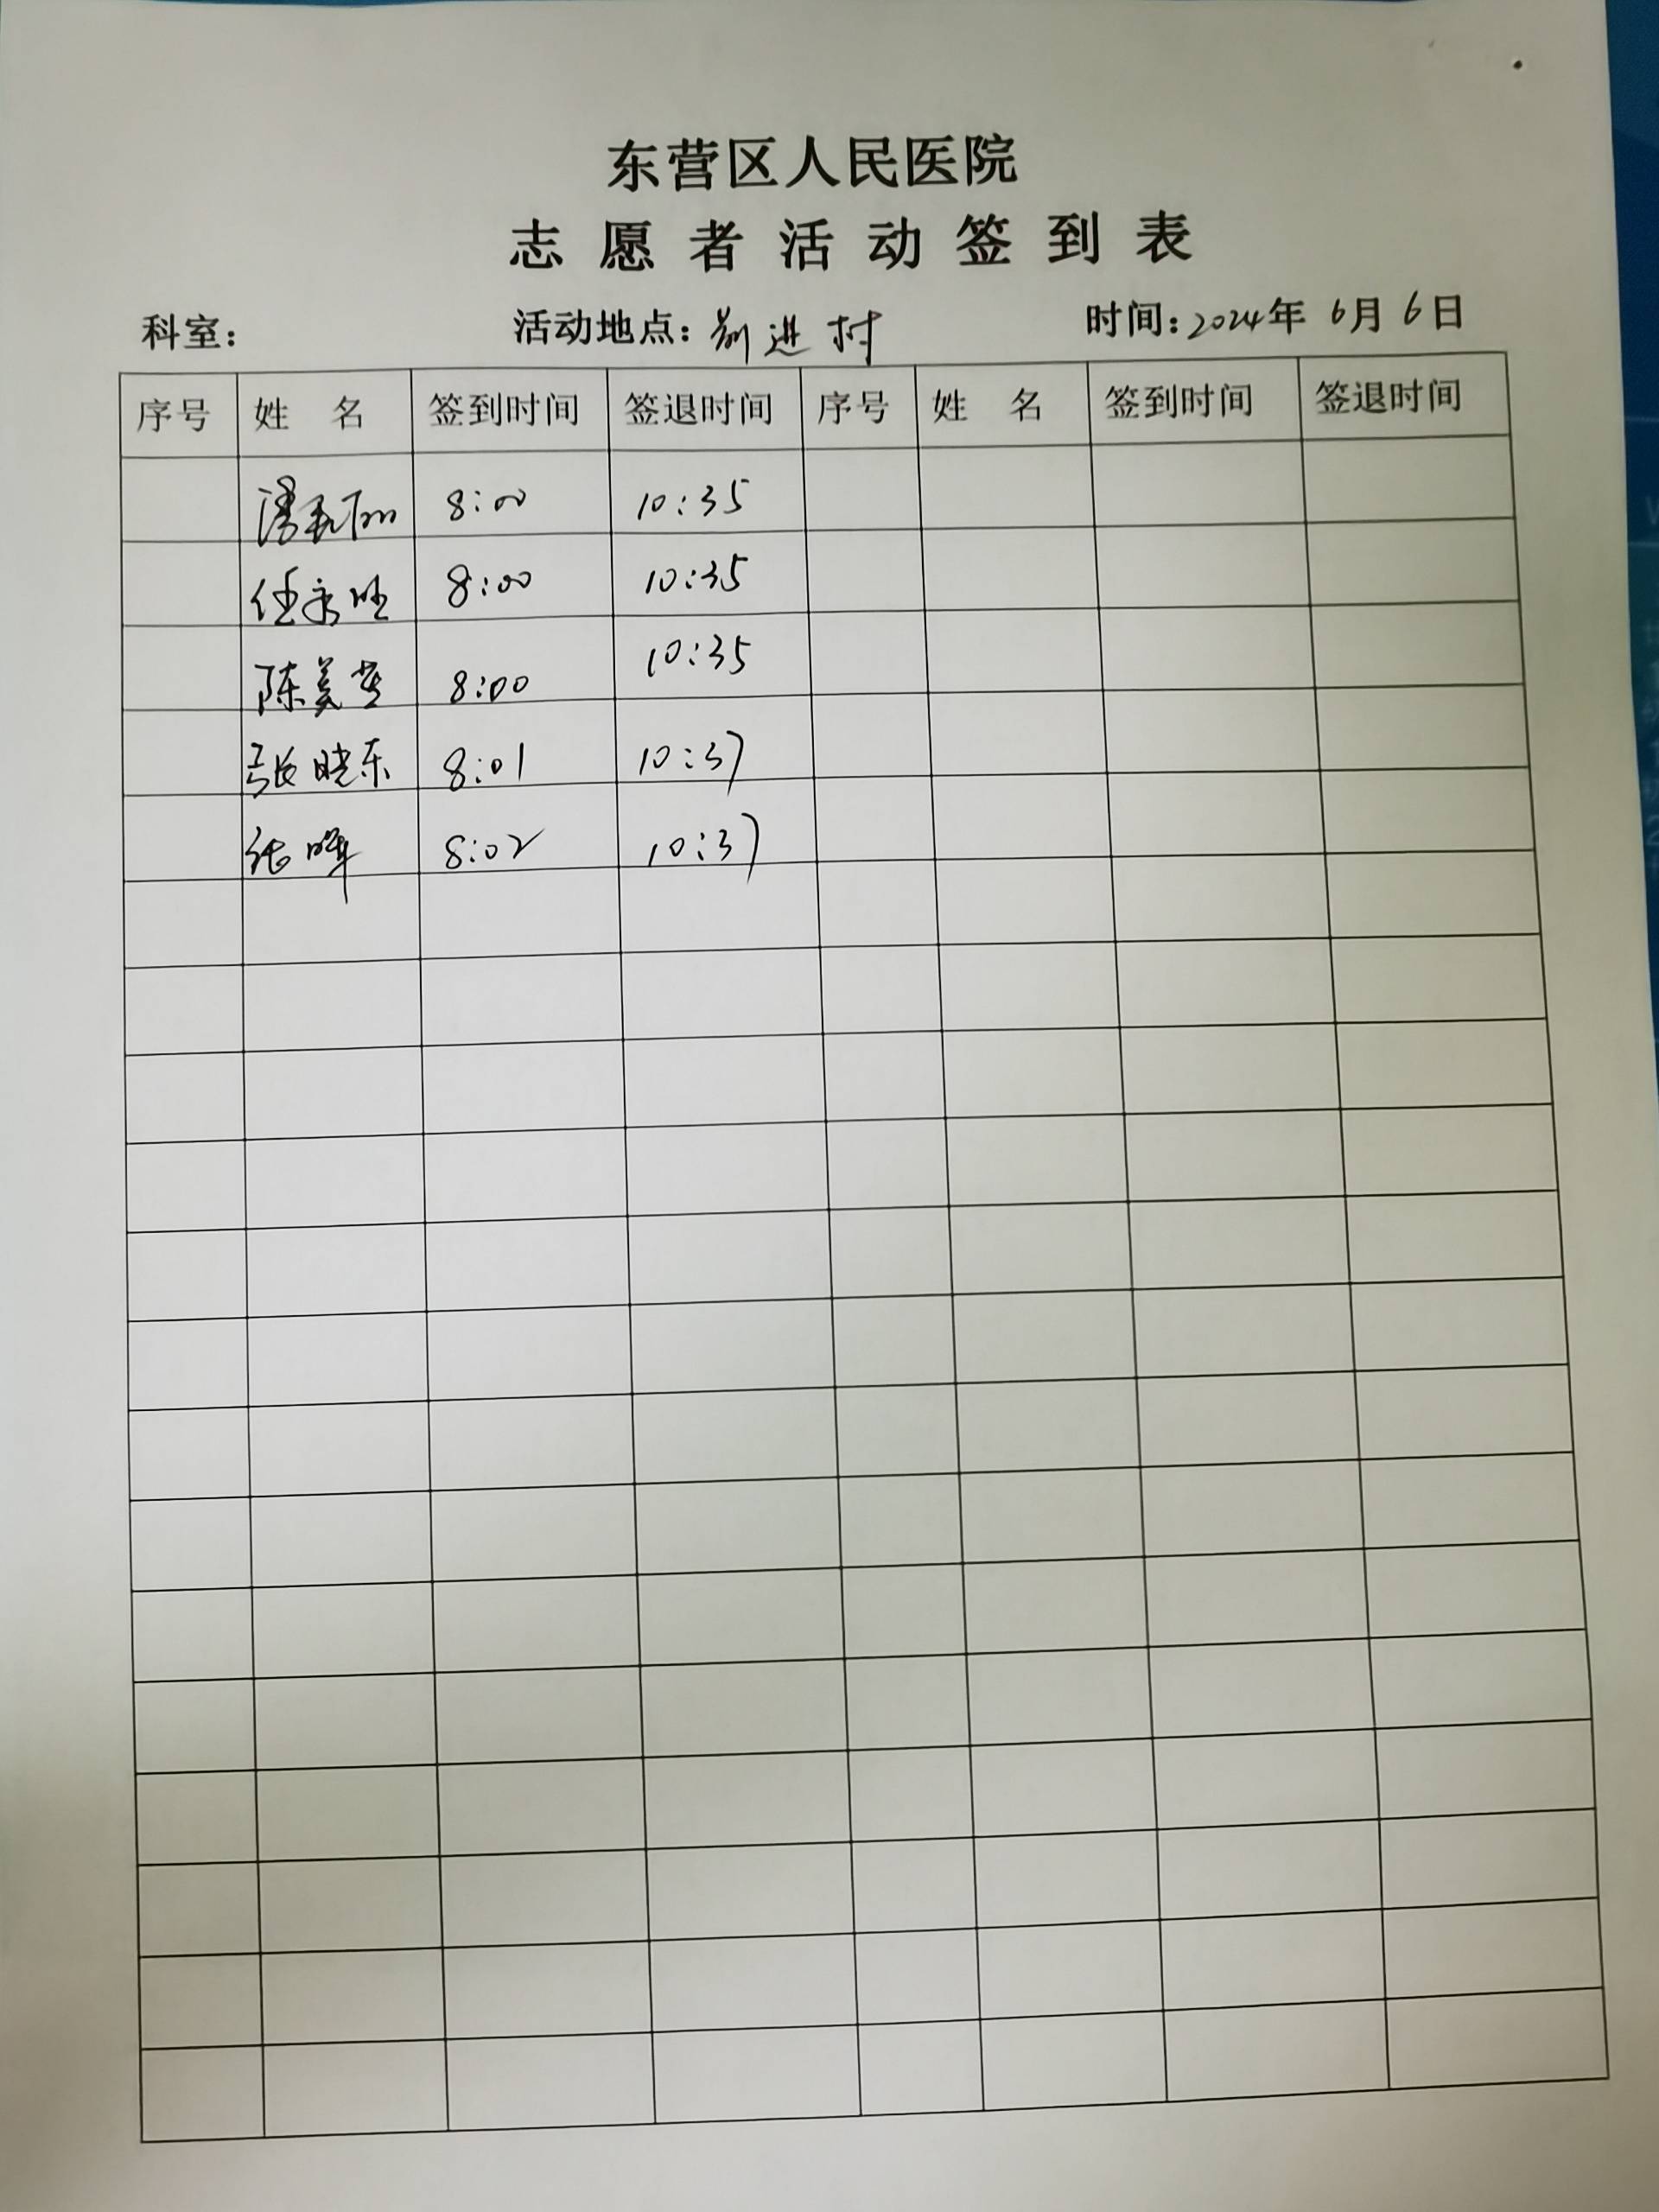 东营区人民医院
志愿者活动签到表
科室： 活动地点：前进村 时间：2024年 6月 6日
序号 姓 名 签到时间 签退时间 序号 姓 名 签到时间 签退时间
8:00 10:35
任永胜 8:00 10:35
陈美 8:00 10:35
张晓东 8:01 10:37
张晖 8:02 10:37